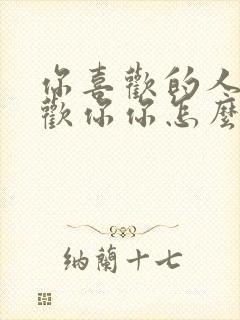 你喜歡的人
歡你你怎麼
納蘭十七